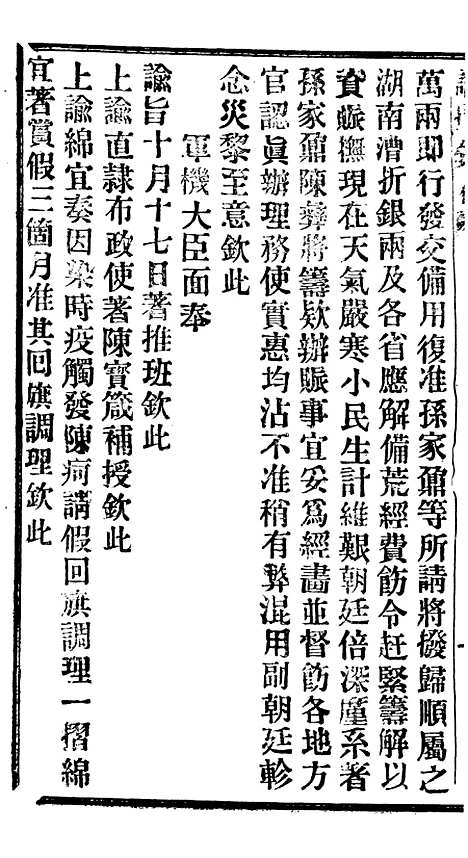 萬兩即行發交備用復准孫家鼐等所請將撥歸順屬之
湖南漕折銀兩及各省應解備荒經費飭令赶緊籌解以
資賑撫現在天氣嚴寒小民生計維艱朝廷倍深廑系著
孫家鼐陳彝將籌欵辦賑事宜妥爲經畫並督飭各地方
官認眞辦理務使實惠均沾不准稍有弊混用副朝廷軫
念災黎至意欽此
軍機大臣面奉
諭旨十月十七日著推班欽此
上諭直隷布政使著陳寶箴補授欽此
上諭綿宜奏因染時疫觸發陳疴請假回旗調理一摺綿
宜著賞假三箇月准其回旗調理欽此